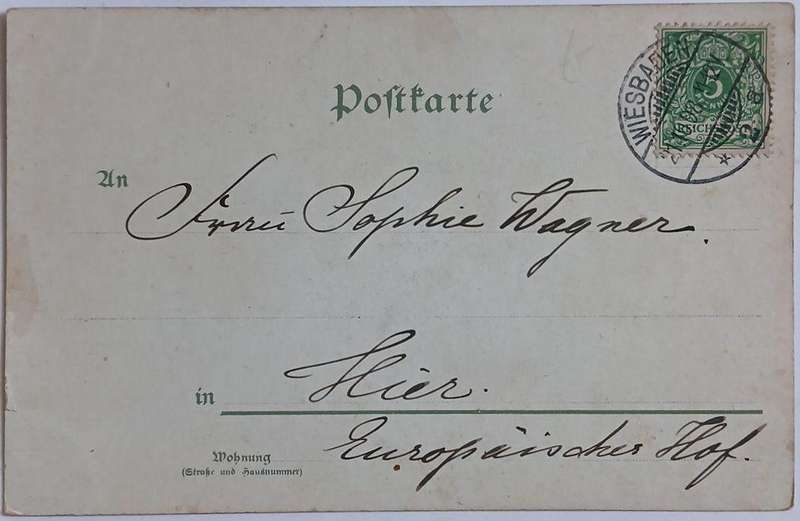 Postkarte
WIESBADEN
5
An
Frau Sophie Wagner.
in
Hier.
Wohnung
(Straße und Hausnummer)
Europäischer Hof.